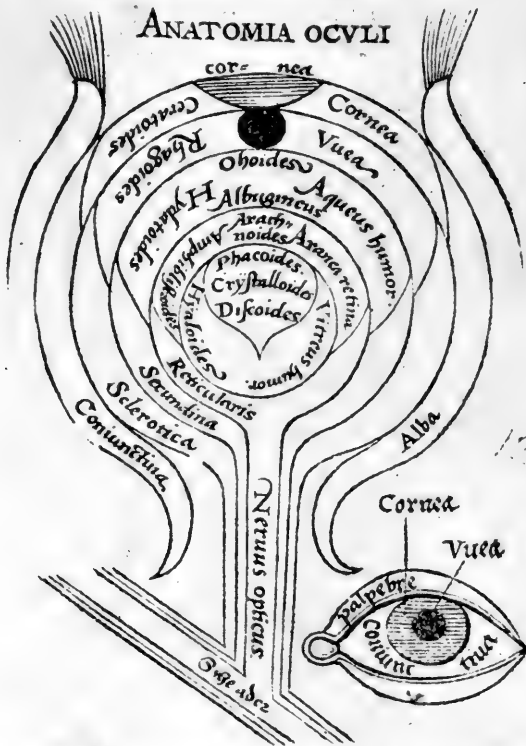 ANATOMIA OCVLI
cor= nea
Ceratoides
Cornea
Rhagoides
Vuea
Ohoides
Hydatoides
Albugineus
Aqueus humor.
Arach=
noides
Amphiblistroides
Aranea retina
Phacoides.
Crÿstalloides
Discoides
Hyaloides
Vitreus humor.
Reticularis
Secundina
Sclerotica
Coniunctiua
Alba
Neruus opticus
Cornea
Vuea
palpebre
Coniunc tiua